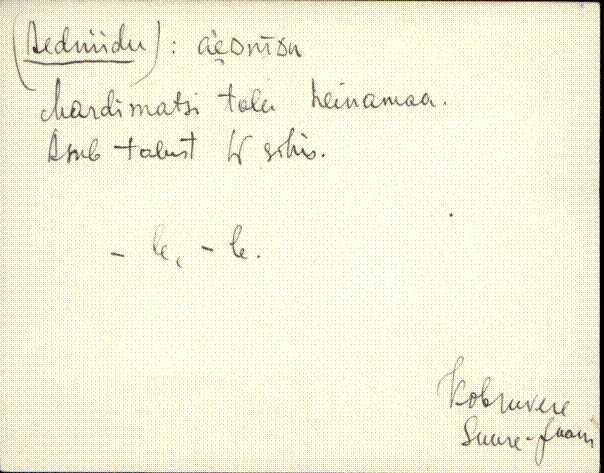 (Aedniidu) : äe̬ᴅnīᴅu
Mardimatsi talu heinamaa.
Asub talust W sihis.
- le, - le.
Kobruvere
Suure-Jaani